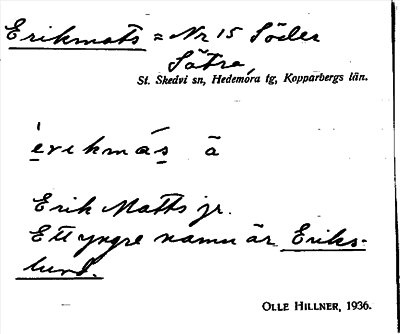 Erikmats = Nr 15 Söder
Sätra,
St. Skedvi sn, Hedemora tg, Kopparbergs län.
èrikmás ā
Erik Matts jr.
Ett yngre namn är Eriks-
lund.
OLLE HILLNER, 1936.